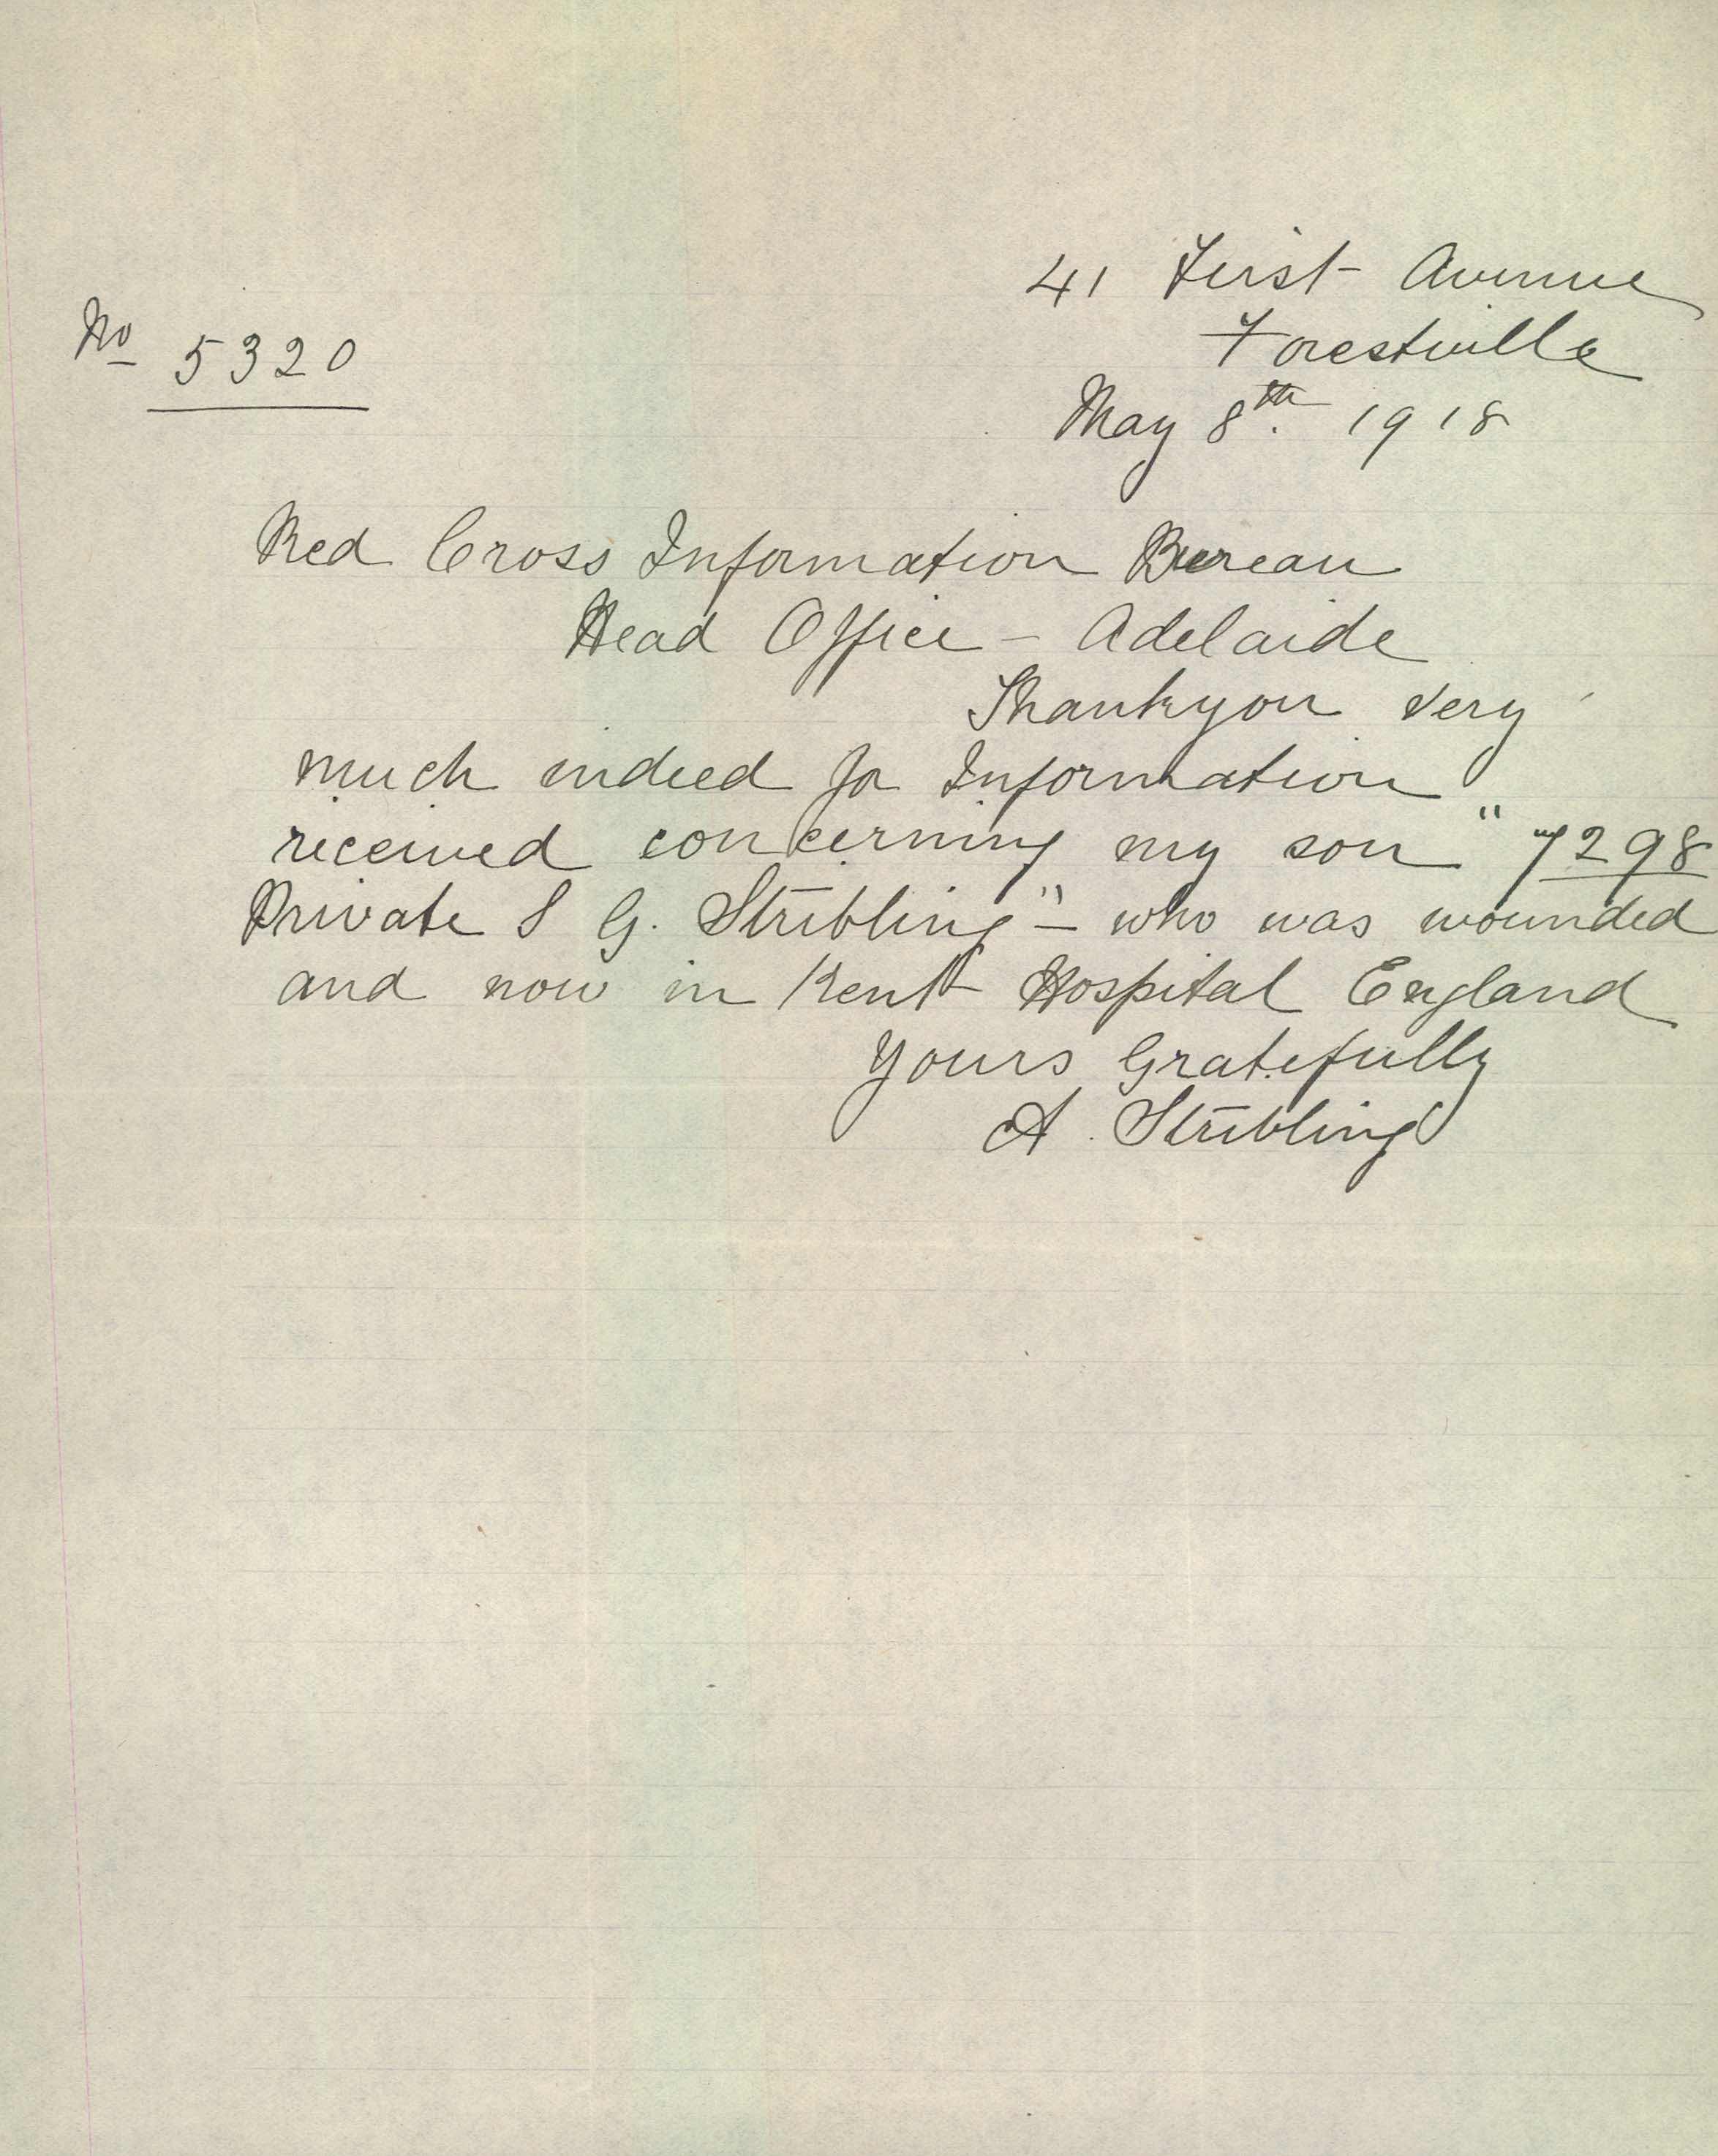 41 First Avenue
No 5320
Forestville
May 8th. 1918
Red Cross Information Bureau
Head Office - Adelaide
Thankyou very
much indeed for Information
received concerning my son "7298
Private S G. Stribling" - who was wounded
and now in Kent Hospital England
Yours Gratefully
A. Stribling